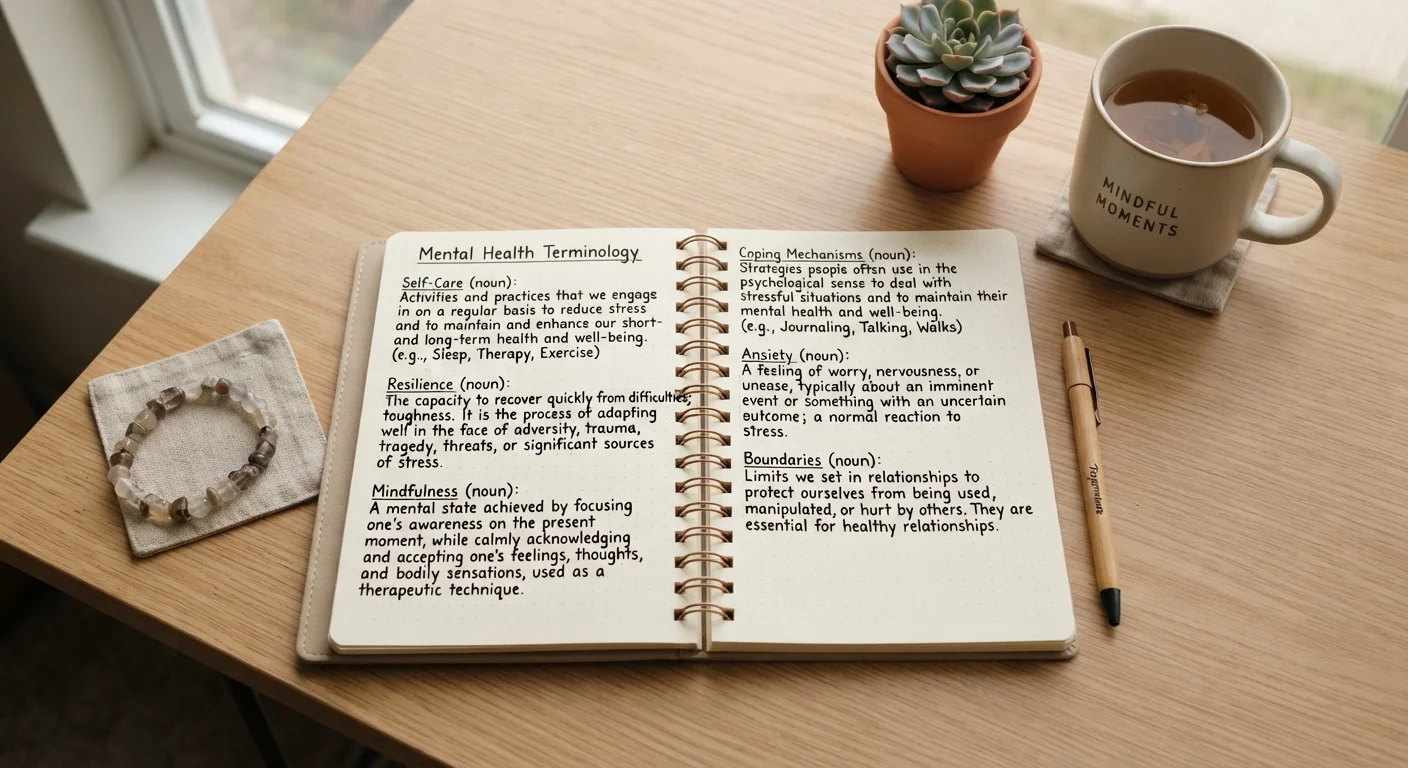 Mental Health Terminology
Self-Care (noun):
Activities and practices that we engage
in on a regular basis to reduce stress
and to maintain and enhance our short-
and long-term health and well-being.
(e.g., Sleep, Therapy, Exercise)
Resilience (noun):
The capacity to recover quickly from difficulties;
toughness. It is the process of adapting
well in the face of adversity, trauma,
tragedy, threats, or significant sources
of stress.
Mindfulness (noun):
A mental state achieved by focusing
one's awareness on the present
moment, while calmly acknowledging
and accepting one's feelings, thoughts,
and bodily sensations, used as a
therapeutic technique.
Coping Mechanisms (noun):
Strategies people often use in the
psychological sense to deal with
stressful situations and to maintain their
mental health and well-being.
(e.g., Journaling, Talking, Walks)
Anxiety (noun):
A feeling of worry, nervousness, or
unease, typically about an imminent
event or something with an uncertain
outcome; a normal reaction to
stress.
Boundaries (noun):
Limits we set in relationships to
protect ourselves from being used,
manipulated, or hurt by others. They are
essential for healthy relationships.
MINDFUL
MOMENTS